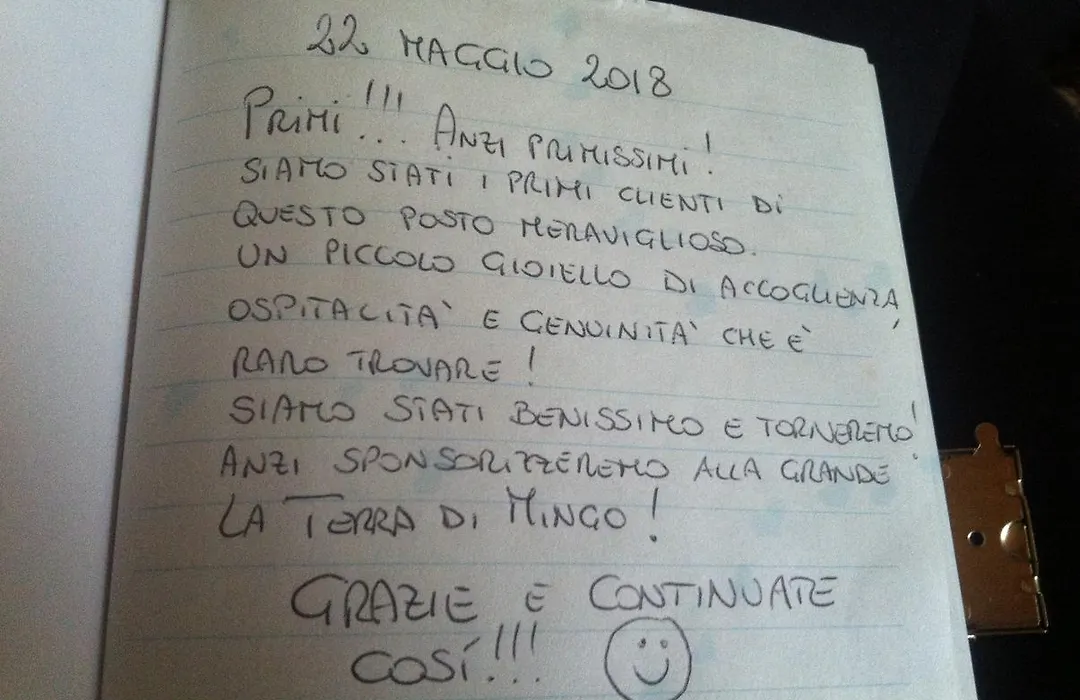 22 MAGGIO 2018
PRIMI!!! ANZI PRIMISSIMI!
SIAMO STATI I PRIMI CLIENTI DI
QUESTO POSTO MERAVIGLIOSO.
UN PICCOLO GIOIELLO DI ACCOGLIENZA,
OSPITALITA' E GENUINITA' CHE E'
RARO TROVARE!
SIAMO STATI BENISSIMO E TORNEREMO!
ANZI SPONSORIZZEREMO ALLA GRANDE
LA TERRA DI MINGO!
GRAZIE E CONTINUATE
COSÍ!!!